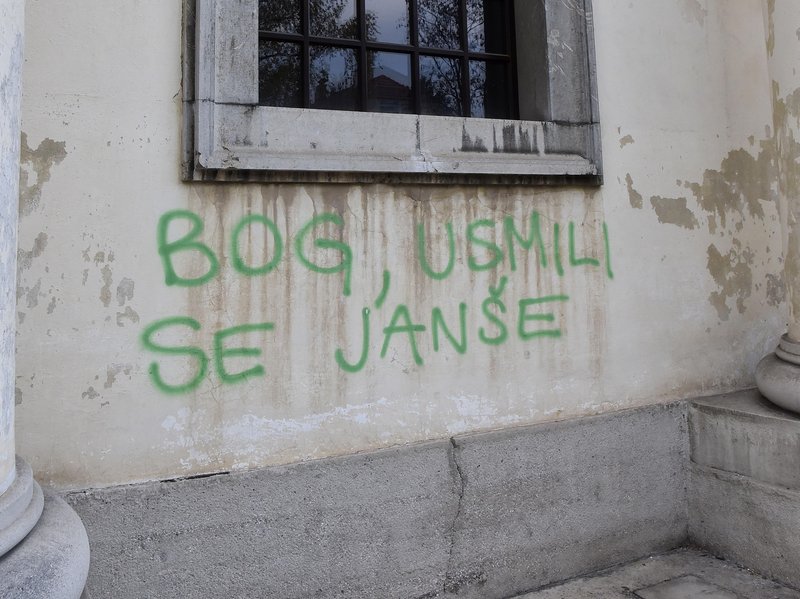 BOG, USMILI
SE JANŠE